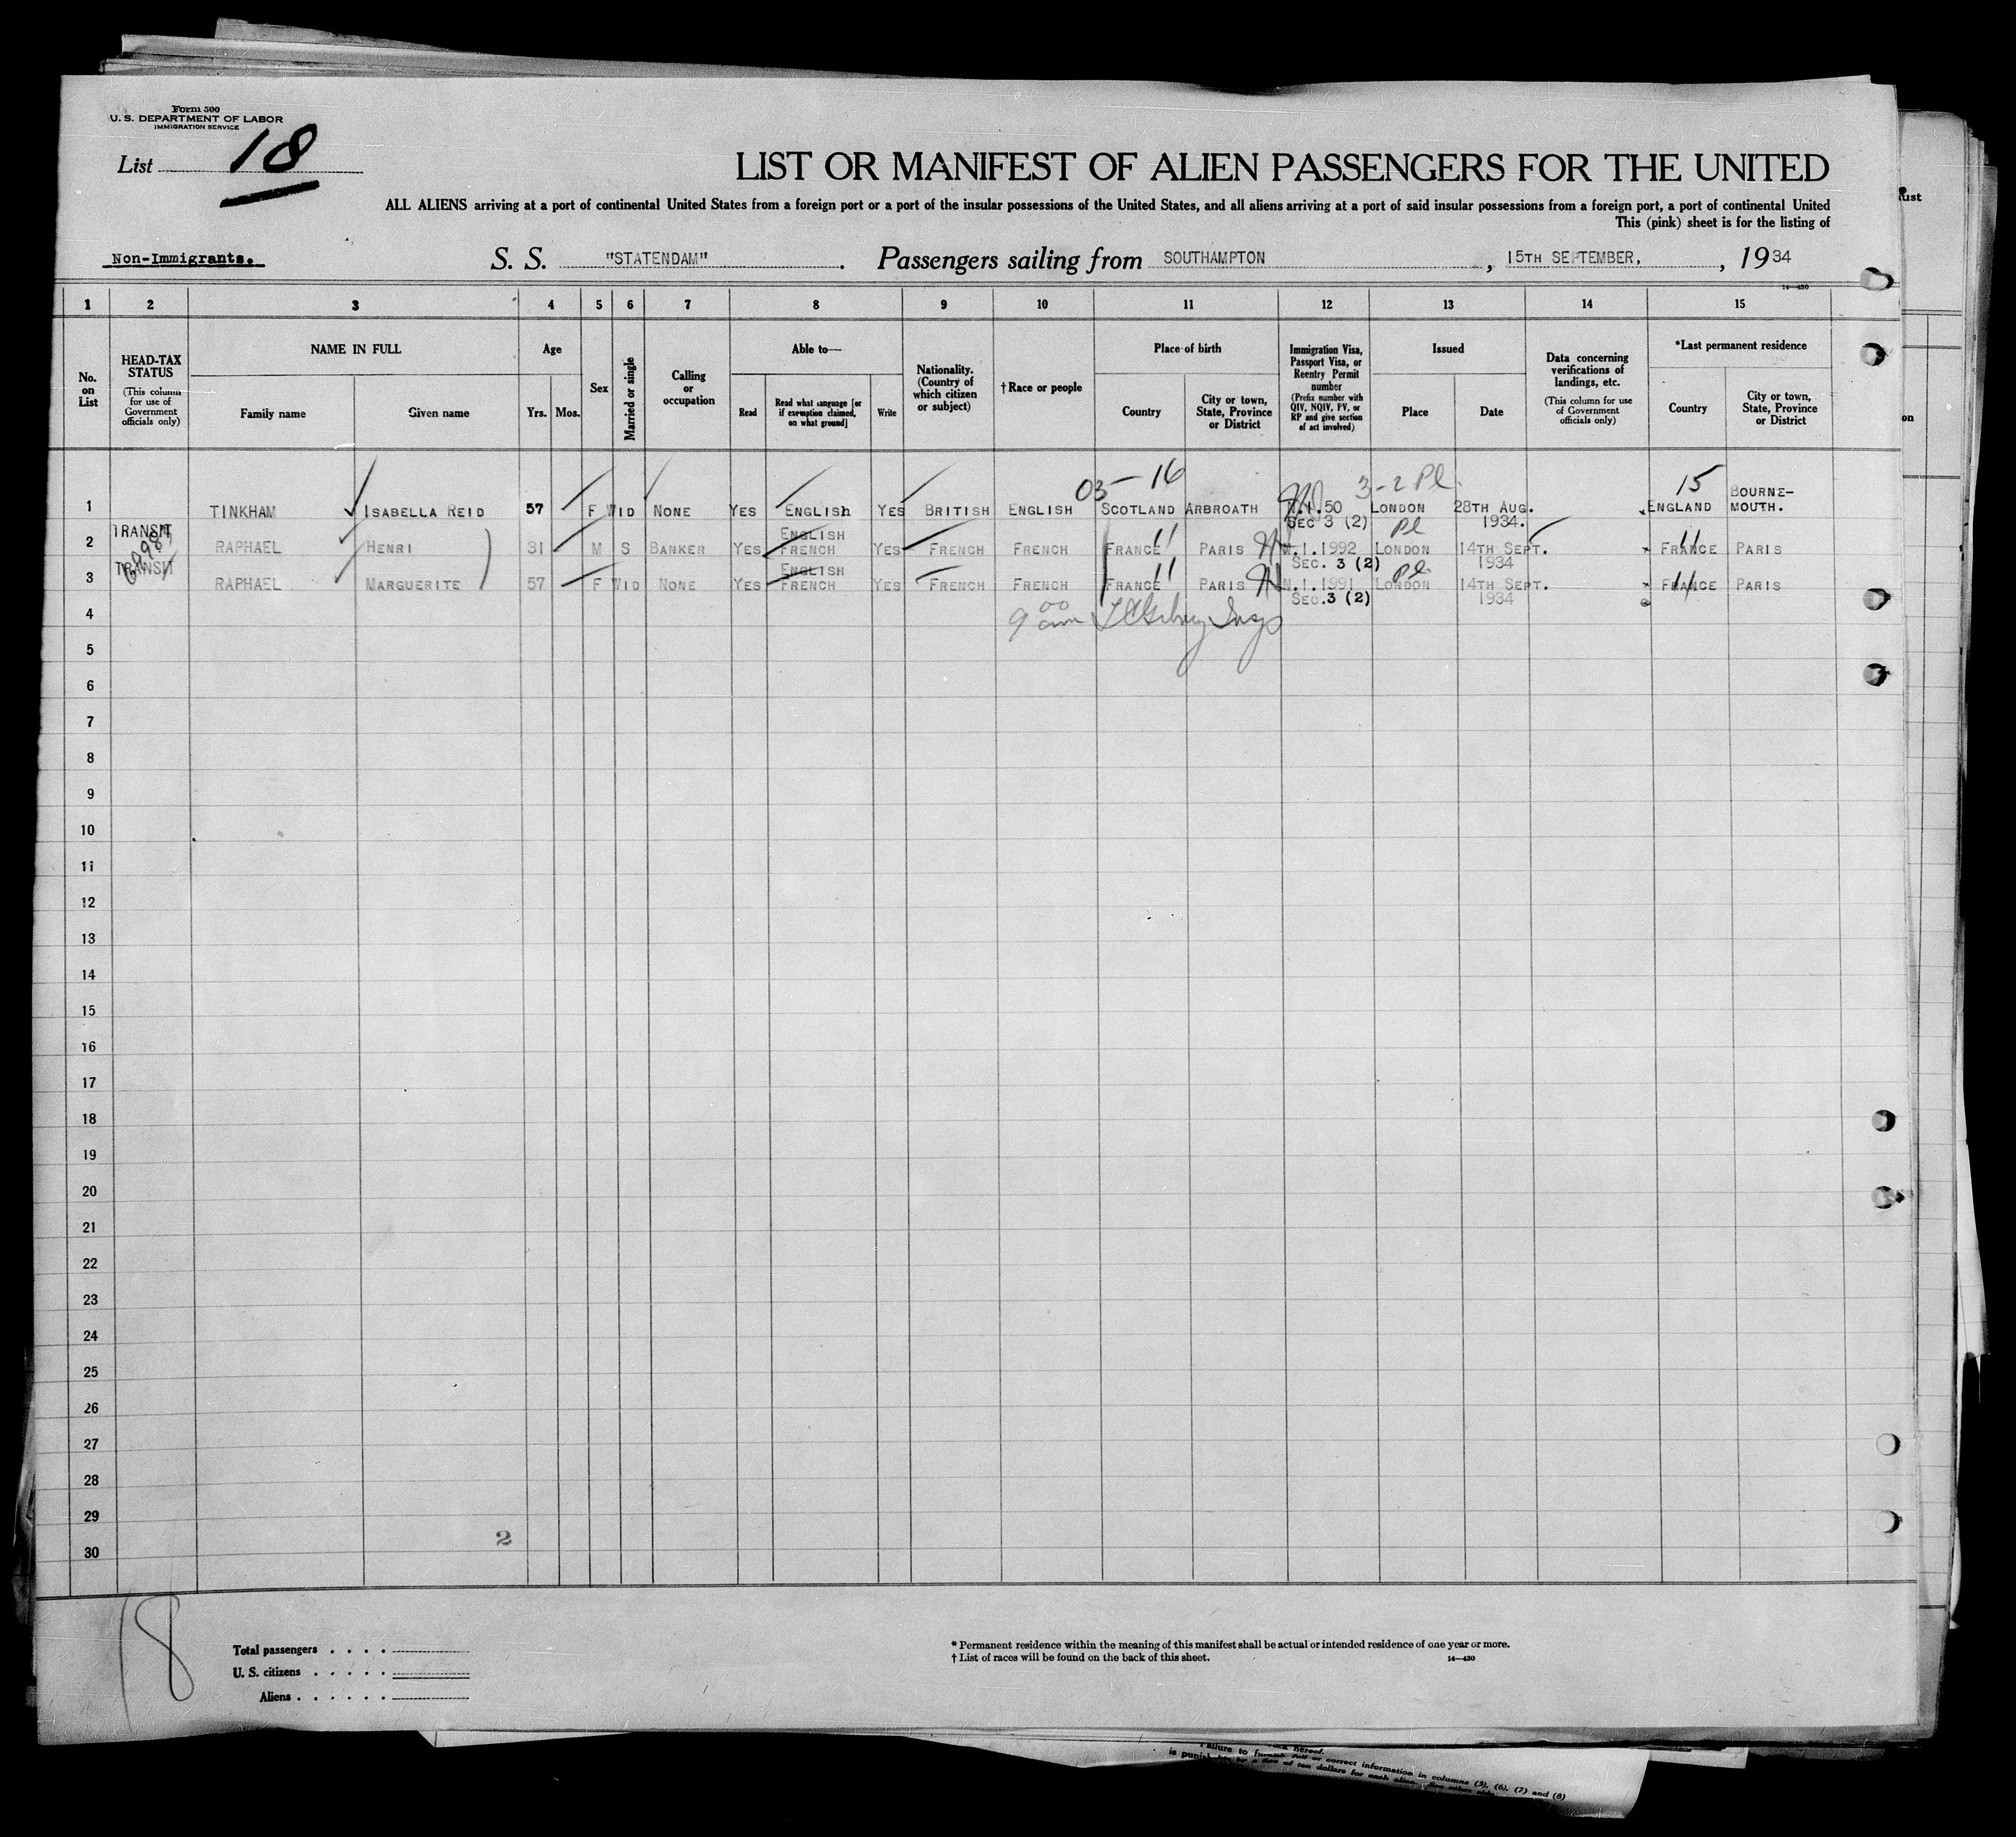 Form 500
U. S. DEPARTMENT OF LABOR
IMMIGRATION SERVICE
List 18
LIST OR MANIFEST OF ALIEN PASSENGERS FOR THE UNITED
ALL ALIENS arriving at a port of continental United States from a foreign port or a port of the insular possessions of the United States, and all aliens arriving at a port of said insular possessions from a foreign port, a port of continental United
This (pink) sheet is for the listing of
Non-Immigrants. S. S. "STATENDAM". Passengers sailing from SOUTHAMPTON, 15TH SEPTEMBER, , 1934
14—430
1 2 3 4 5 6 7 8 9 10 11 12 13 14 15
No. on List
HEAD-TAX STATUS
(This column for use of Government officials only)
NAME IN FULL
Family name
Given name
Age
Yrs.
Mos.
Sex
Married or single
Calling or occupation
Able to—
Read
Read what language [or if exemption claimed, on what ground]
Write
Nationality. (Country of which citizen or subject)
†Race or people
Place of birth
Country
City or town, State, Province or District
Immigration Visa, Passport Visa, or Reentry Permit number
(Prefix number with QIV, NQIV, PV, or RP and give section of act involved)
Issued
Place
Date
Data concerning verifications of landings, etc.
(This column for use of Government officials only)
*Last permanent residence
Country
City or town, State, Province or District
03-16 3-2 Pl. 15
1 TINKHAM ISABELLA REID 57 F WID NONE YES ENGLISH YES BRITISH ENGLISH SCOTLAND ARBROATH N.I.50 LONDON 28TH AUG. ENGLAND BOURNE-
SEC 3 (2) 1934. MOUTH.
TRANSIT ENGLISH 11 Pl 11
2 RAPHAEL HENRI 31 M S BANKER YES FRENCH YES FRENCH FRENCH FRANCE PARIS N.I.1992 LONDON 14TH SEPT. FRANCE PARIS
SEC. 3 (2) 1934
TRANSIT ENGLISH 11 Pl 11
3 RAPHAEL MARGUERITE 57 F WID NONE YES FRENCH YES FRENCH FRENCH FRANCE PARIS N.I.1991 LONDON 14TH SEPT. FRANCE PARIS
SEC.3 (2) 1934
4 9 00 am Insp
5
6
7
8
9
10
11
12
13
14
15
16
17
18
19
20
21
22
23
24
25
26
27
28
29
2
30
18
Total passengers
U. S. citizens
Aliens
* Permanent residence within the meaning of this manifest shall be actual or intended residence of one year or more.
† List of races will be found on the back of this sheet.
14—430
hereof.
Failure to furnish full or correct information in columns (3), (6), (7) and (8)
is punishable by a fine of ten dollars for each alien.